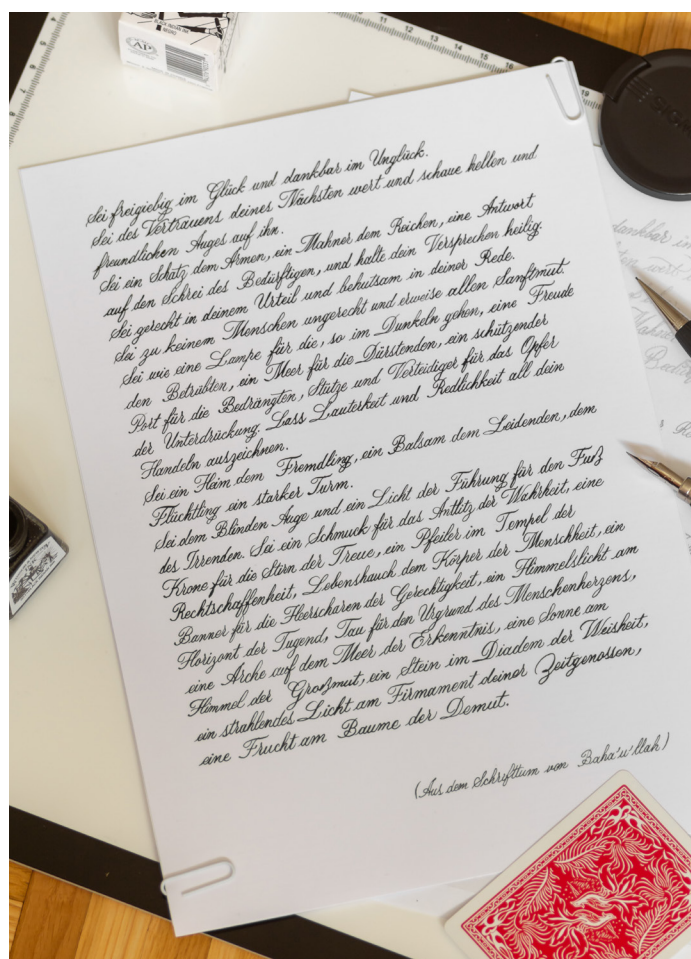 Sei freigiebig im Glück und dankbar im Unglück.
Sei des Vertrauens deines Nächsten wert und schaue hellen und
freundlichen Auges auf ihn.
Sei ein Schatz dem Armen, ein Mahner dem Reichen, eine Antwort
auf den Schrei des Bedürftigen, und halte dein Versprechen heilig.
Sei gerecht in deinem Urteil und behutsam in deiner Rede.
Sei zu keinem Menschen ungerecht und erweise allen Sanftmut.
Sei wie eine Lampe für die, so im Dunkeln gehen, eine Freude
den Betrübten, ein Meer für die Dürstenden, ein schützender
Port für die Bedrängten, Stütze und Verteidiger für das Opfer
der Unterdrückung. Lass Lauterkeit und Redlichkeit all dein
Handeln auszeichnen.
Sei ein Heim dem Fremdling, ein Balsam dem Leidenden, dem
Flüchtling ein starker Turm.
Sei dem Blinden Auge und ein Licht der Führung für den Fuß
des Irrenden. Sei ein Schmuck für das Antlitz der Wahrheit, eine
Krone für die Stirn der Treue, ein Pfeiler im Tempel der
Rechtschaffenheit, Lebenshauch dem Körper der Menschheit, ein
Banner für die Heerscharen der Gerechtigkeit, ein Himmelslicht am
Horizont der Tugend, Tau für den Urgrund des Menschenherzens,
eine Arche auf dem Meer der Erkenntnis, eine Sonne am
Himmel der Großmut, ein Stein im Diadem der Weisheit,
ein strahlendes Licht am Firmament deiner Zeitgenossen,
eine Frucht am Baume der Demut.
(Aus dem Schrifttum von Baha'u'llah)
AP
11 12 13 14 15 16
19
dankbar